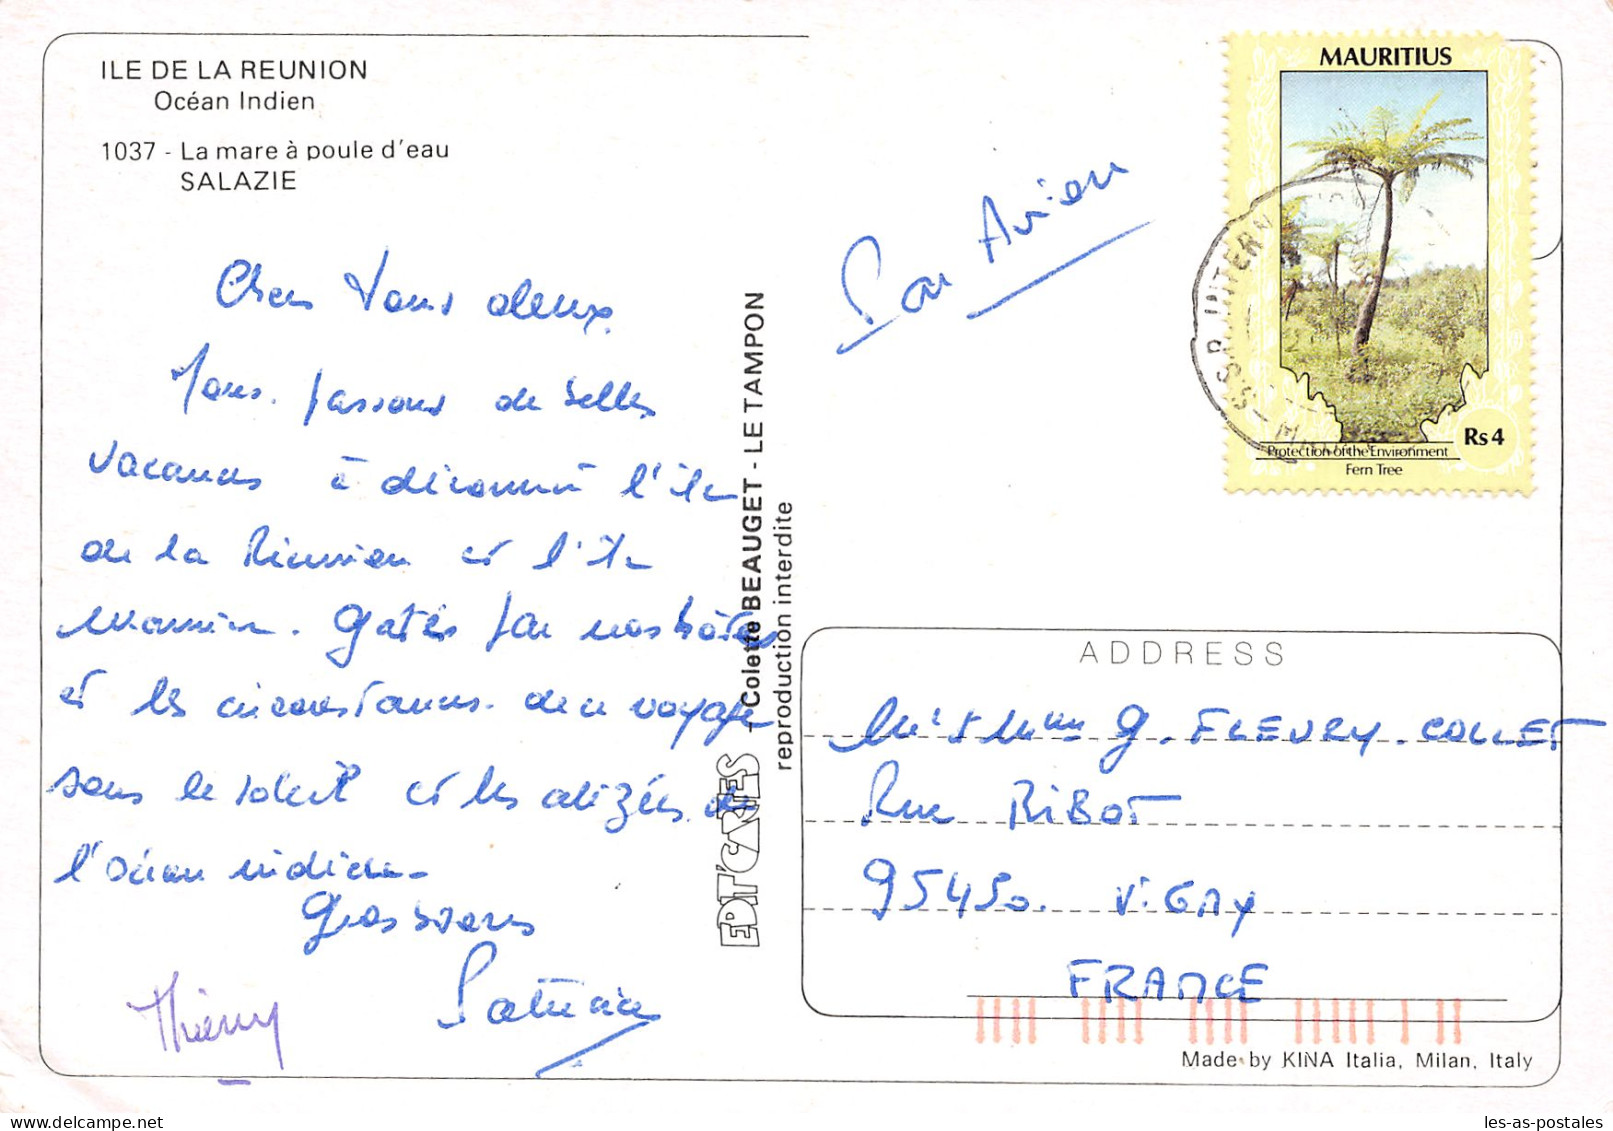 ILE DE LA REUNION
Océan Indien
1037 - La mare à poule d'eau
SALAZIE
Chers Vous deux
Nous passons de belles
vacances à découvrir l'île
de la Réunion et l'île
Maurice. Gâtés par nos hôtes
et les circonstances de ce voyage
sous le soleil et les alizées de
l'Océan indien
Gros bisous
Thierry
Patricia
EDIT'CARTES - Colette BEAUGET - LE TAMPON
reproduction interdite
Par Avion
MAURITIUS
Rs 4
Protection of the Environment
Fern Tree
ADDRESS
Mr & Mme G. FLEURY. COLLET
Rue RIBOT
95450. VIGNY
FRANCE
Made by KINA Italia, Milan, Italy
les-as-postales